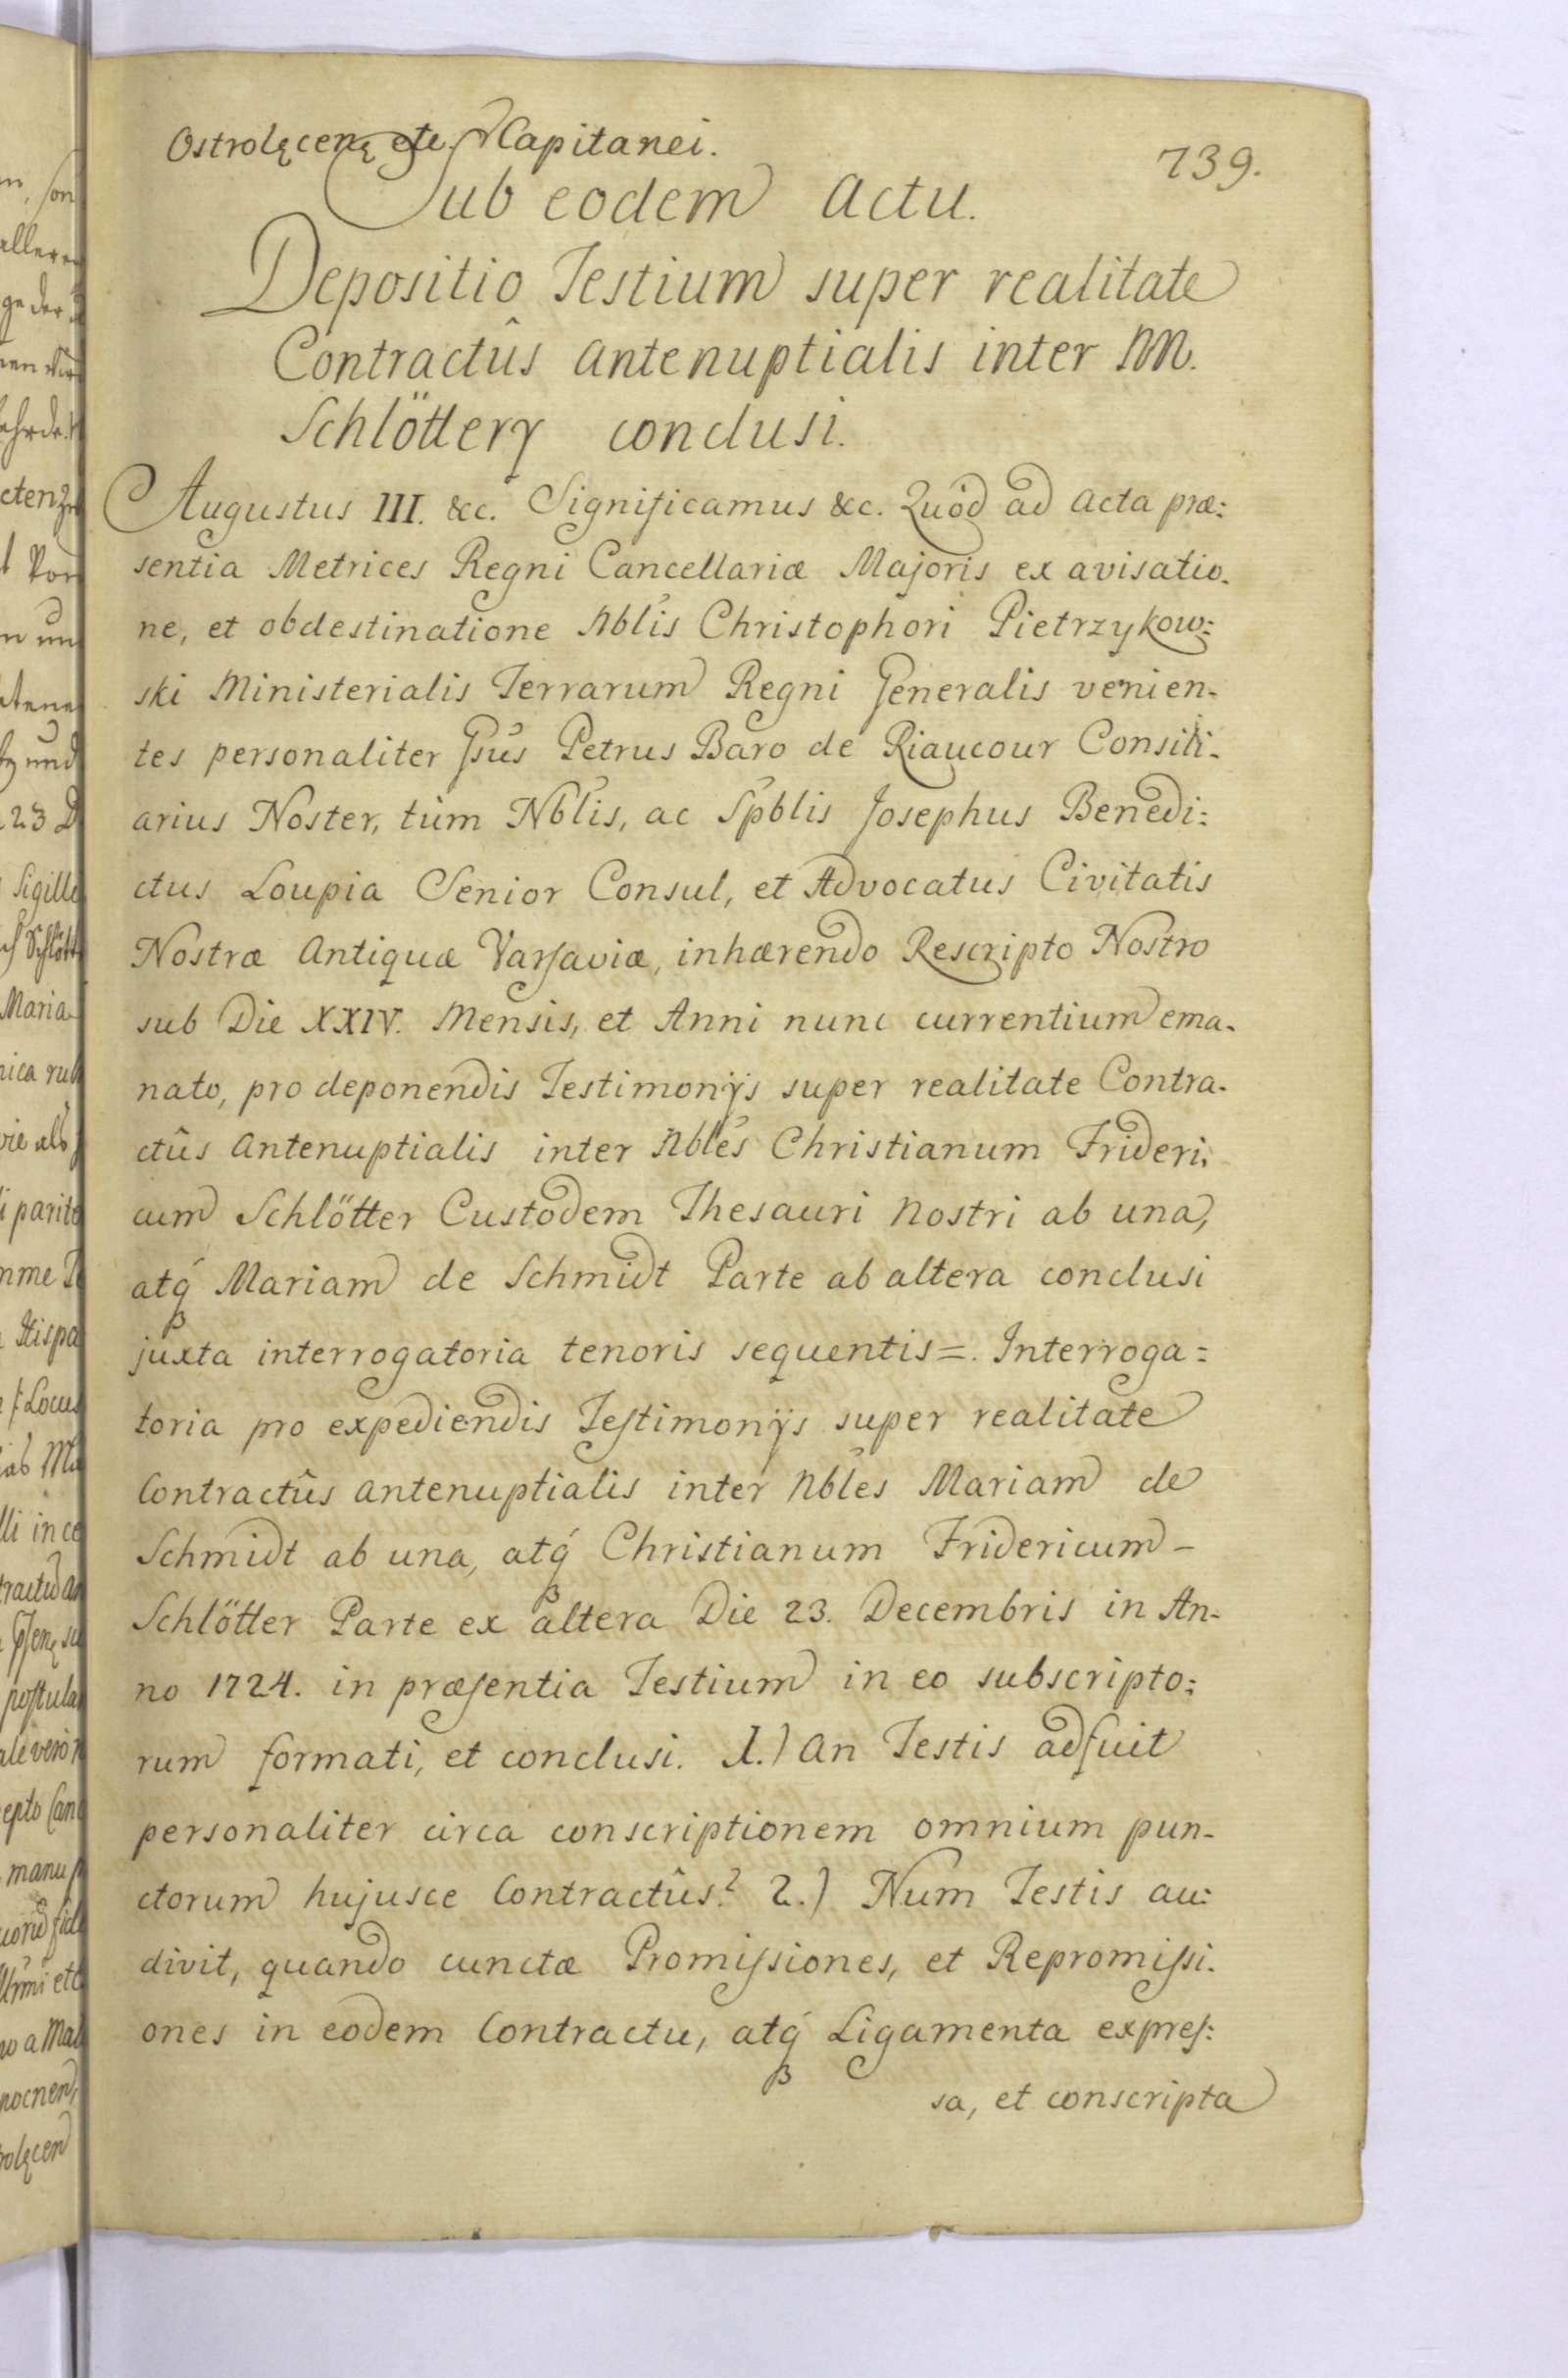 Ostrolęcenę etc. Capitanei.
739.
Sub eodem Actu.
Depositio Testium super realitate
Contractûs Antenuptialis inter NN.
Schlötterÿ conclusi.
Augustus III. &c. Significamus &c. Quòd ad Acta præ:
sentia Metrices Regni Cancellariæ Majoris ex avisatio-
ne, et obdestinatione Nblis Christophori Pietrzykow:
ski Ministerialis Terrarum Regni Generalis venien-
tes personaliter Gsus Petrus Baro de Riaucour Consili-
arius Noster, tùm Nblis, ac Spblis Josephus Benedi:
ctus Loupia Senior Consul, et Advocatus Civitatis
Nostræ Antiquæ Varsaviæ, inhærendo Rescripto Nostro
sub Die XXIV. Mensis, et Anni nunc currentium ema-
nato, pro deponendis Testimonÿs super realitate Contra-
ctûs Antenuptialis inter Nbles Christianum Frideri-
cum Schlötter Custodem Thesauri Nostri ab una,
atq́ Mariam de Schmidt Parte ab altera conclusi
juxta interrogatoria tenoris sequentis =. Interroga:
toria pro expediendis Testimonÿs super realitate
Contractûs Antenuptialis inter Nbles Mariam de
Schmidt ab una, atq́ Christianum Fridericum -
Schlötter Parte ex altera Die 23. Decembris in An-
no 1724. in præsentia Testium in eo subscripto:
rum formati, et conclusi. 1.) An Testis adfuit
personaliter circa conscriptionem omnium pun-
ctorum hujusce Contractûs? 2.) Num Testis au:
divit, quando cunctæ Promissiones, et Repromissi-
ones in eodem Contractu, atq́ Ligamenta expres:
sa, et conscripta